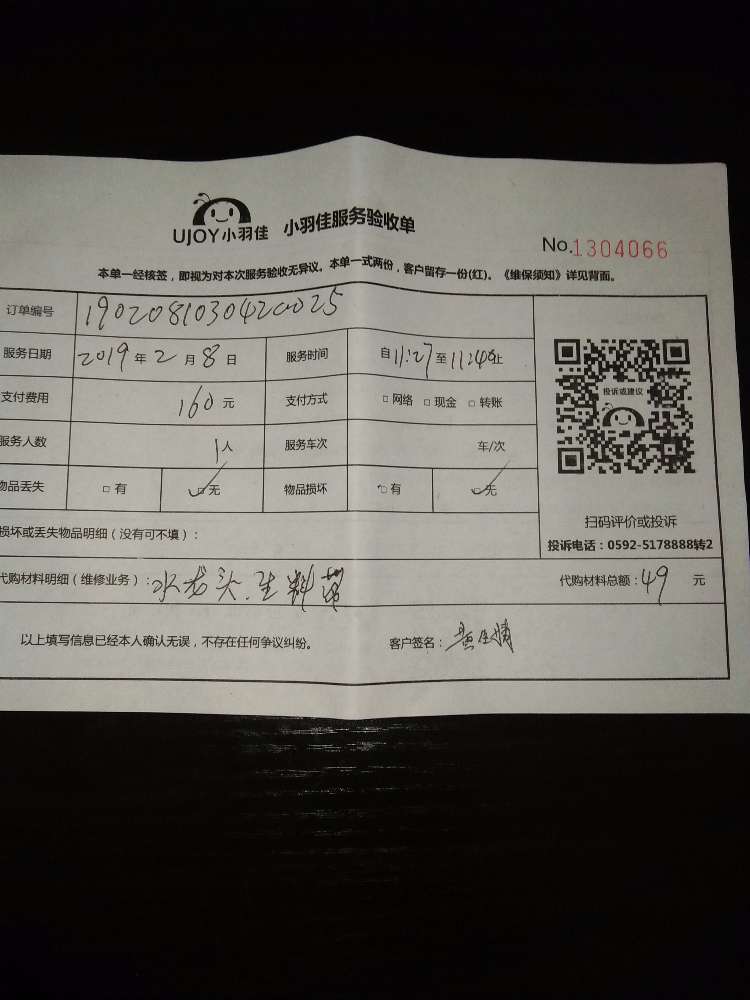 UJOY小羽佳 小羽佳服务验收单
No.1304066
本单一经核签，即视为对本次服务验收无异议。本单一式两份，客户留存一份(红)。《维保须知》详见背面。
订单编号 19020810304420025
服务日期 2019年2月8日 服务时间 自11:27至11:40止
支付费用 160元 支付方式 □网络 □现金 □转账
服务人数 1人 服务车次 车/次
物品丢失 □有 □无 物品损坏 □有 □无
投诉或建议
扫码评价或投诉
投诉电话：0592-5178888转2
损坏或丢失物品明细（没有可不填）：
代购材料明细（维修业务）：水龙头.生料带 代购材料总额：49 元
以上填写信息已经本人确认无误，不存在任何争议纠纷。 客户签名：